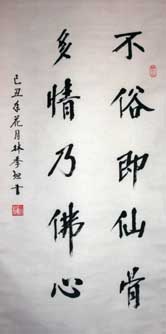 不俗即仙骨
多情乃佛心
己丑年花月林李恕書